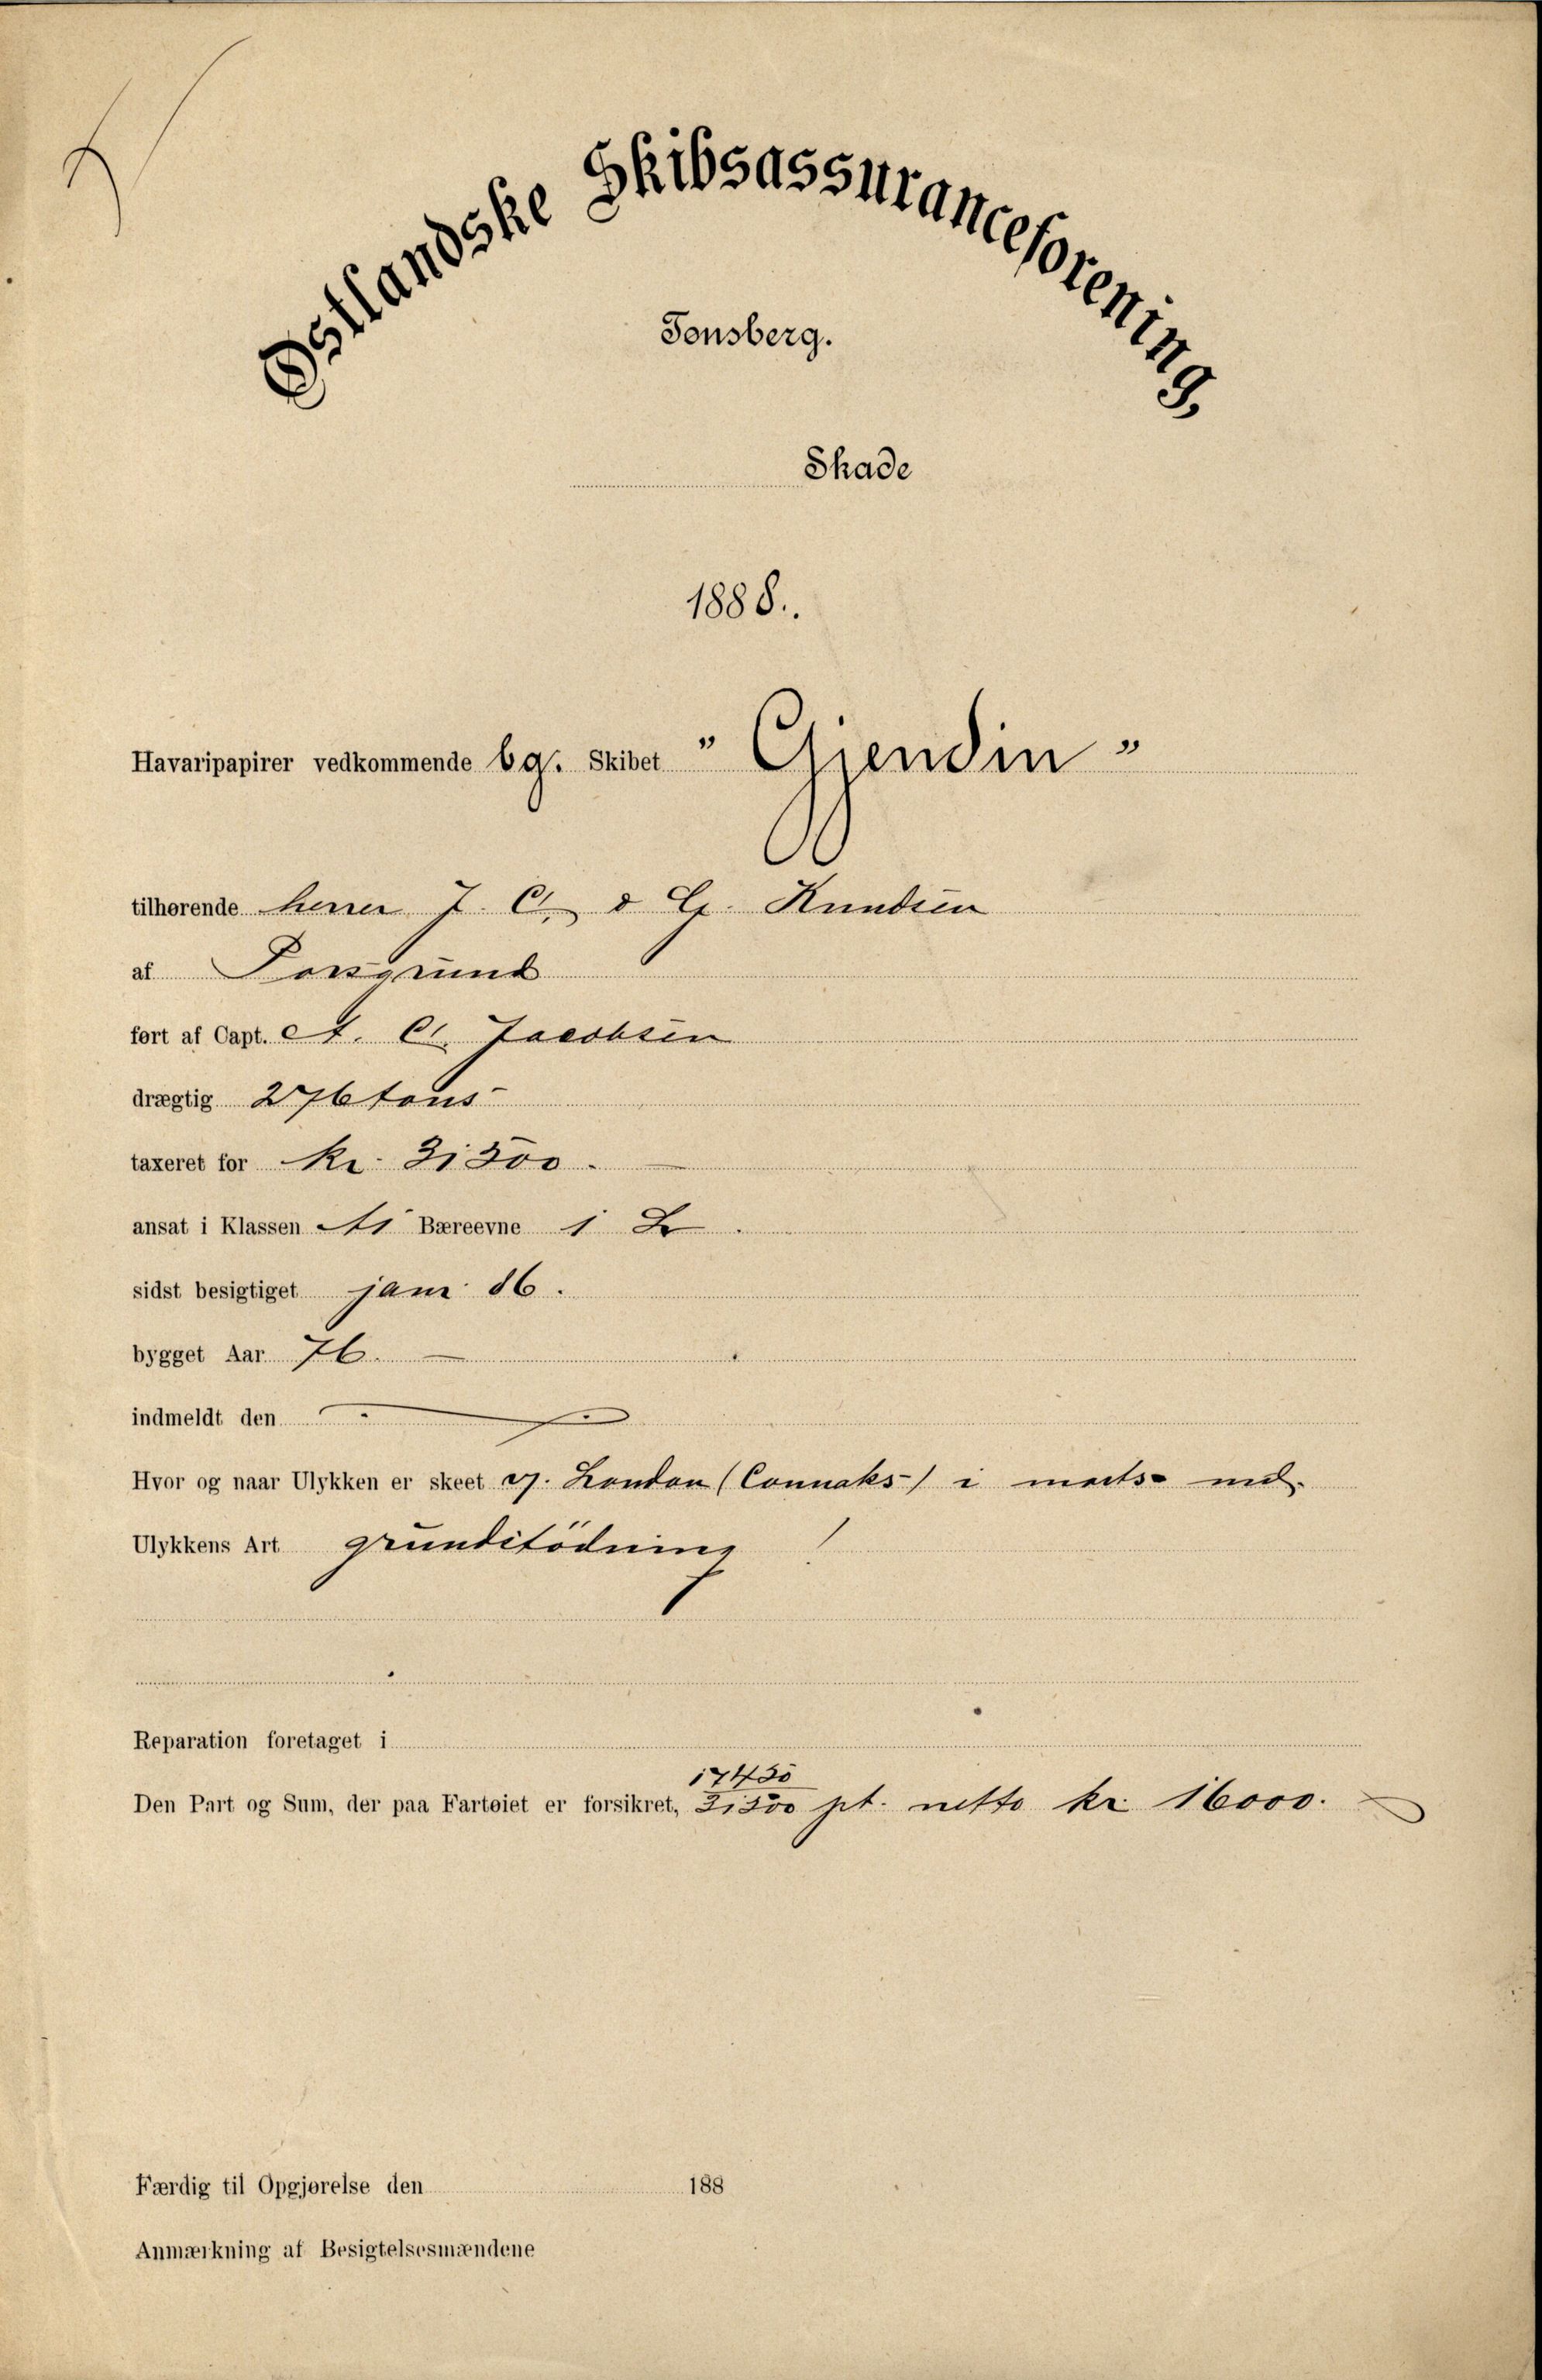 Østlandske Skibsassuranceforening,
Tønsberg.
Skade
1888.
Havaripapirer vedkommende bg. Skibet "Gjendin"
tilhørende herrer J. C. & G. Knudsen
af Porsgrund
ført af Capt. A. C. Jacobsen
drægtig 276 tons
taxeret for Kr. 31500.
ansat i Klassen A1 Bæreevne 1
sidst besigtiget jan 86.
bygget Aar 76.
indmeldt den
Hvor og naar Ulykken er skeet v. London (Connaks-) i marts md.
Ulykkens Art grundstödning
Reparation foretaget i
17450
Den Part og Sum, der paa Fartøiet er forsikret, 31500 pt. netto kr 16000.
Færdig til Opgjørelse den 188
Anmærkning af Besigtelsesmændene